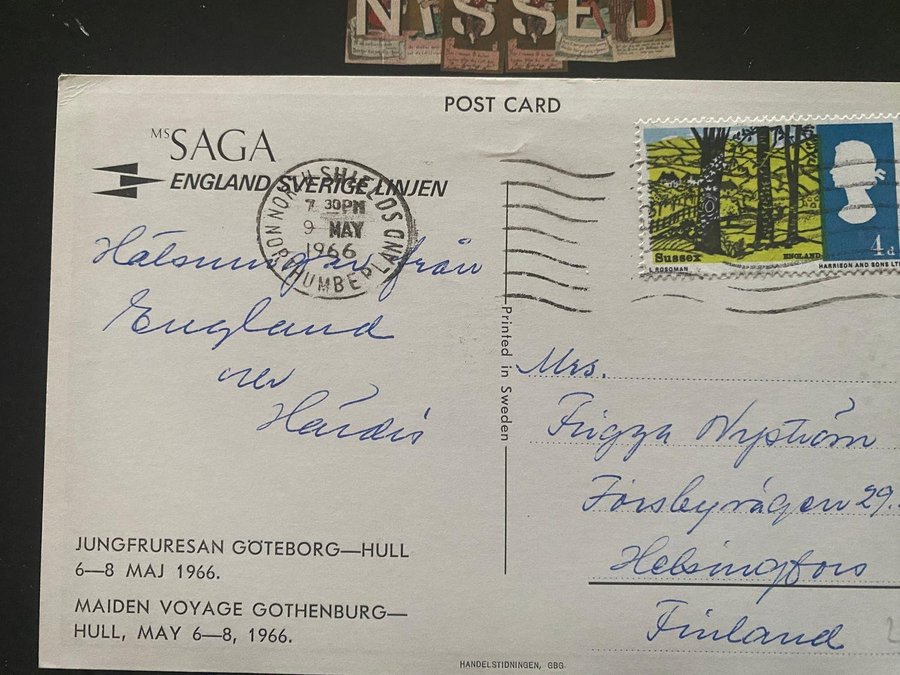 NISSED
POST CARD
MS SAGA
ENGLAND SVERIGE LINJEN
NORTH SHIELDS
7 30PM
9 MAY
1966
NORTHUMBERLAND
Sussex
ENGLAND
4d
L ROSOMAN
HARRISON AND SONS LTD
Hälsningar från
England
Printed in Sweden
Mrs.
Frigga Nyström
Forsbyvägen 29.
Helsingfors
Finland
JUNGFRURESAN GÖTEBORG—HULL
6—8 MAJ 1966.
MAIDEN VOYAGE GOTHENBURG—
HULL, MAY 6—8, 1966.
HANDELSTIDNINGEN, GBG